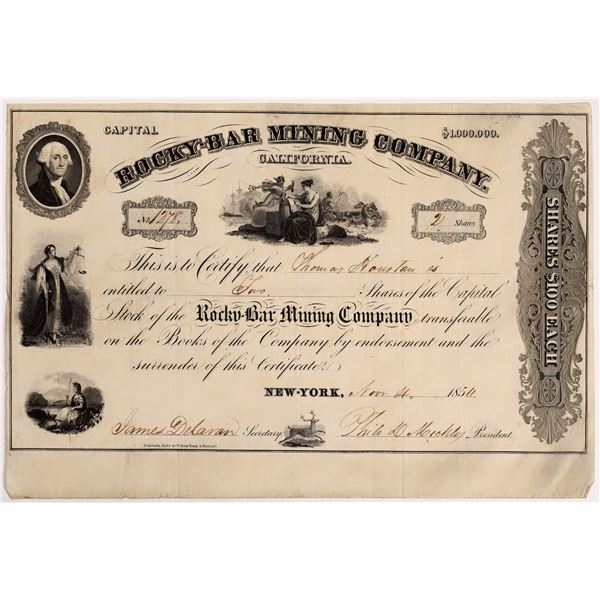 CAPITAL $1.000.000.
ROCKY-BAR MINING COMPANY.
CALIFORNIA.
No. 1278. 2 Shares
This is to Certify, that Thomas Houstan is
entitled to Two Shares of the Capital
Stock of the Rocky Bar Mining Company transferable
on the Books of the Company by endorsement and the
surrender of this Certificate.
NEW-YORK, Nov 4, 1854
James Delavan Secretary. Philo D. Mickles President.
SHARES $100 EACH